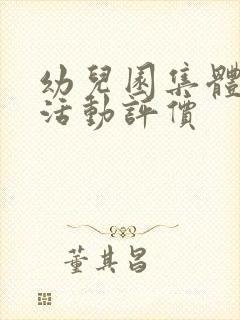 幼兒園集體
活動評價
董其昌